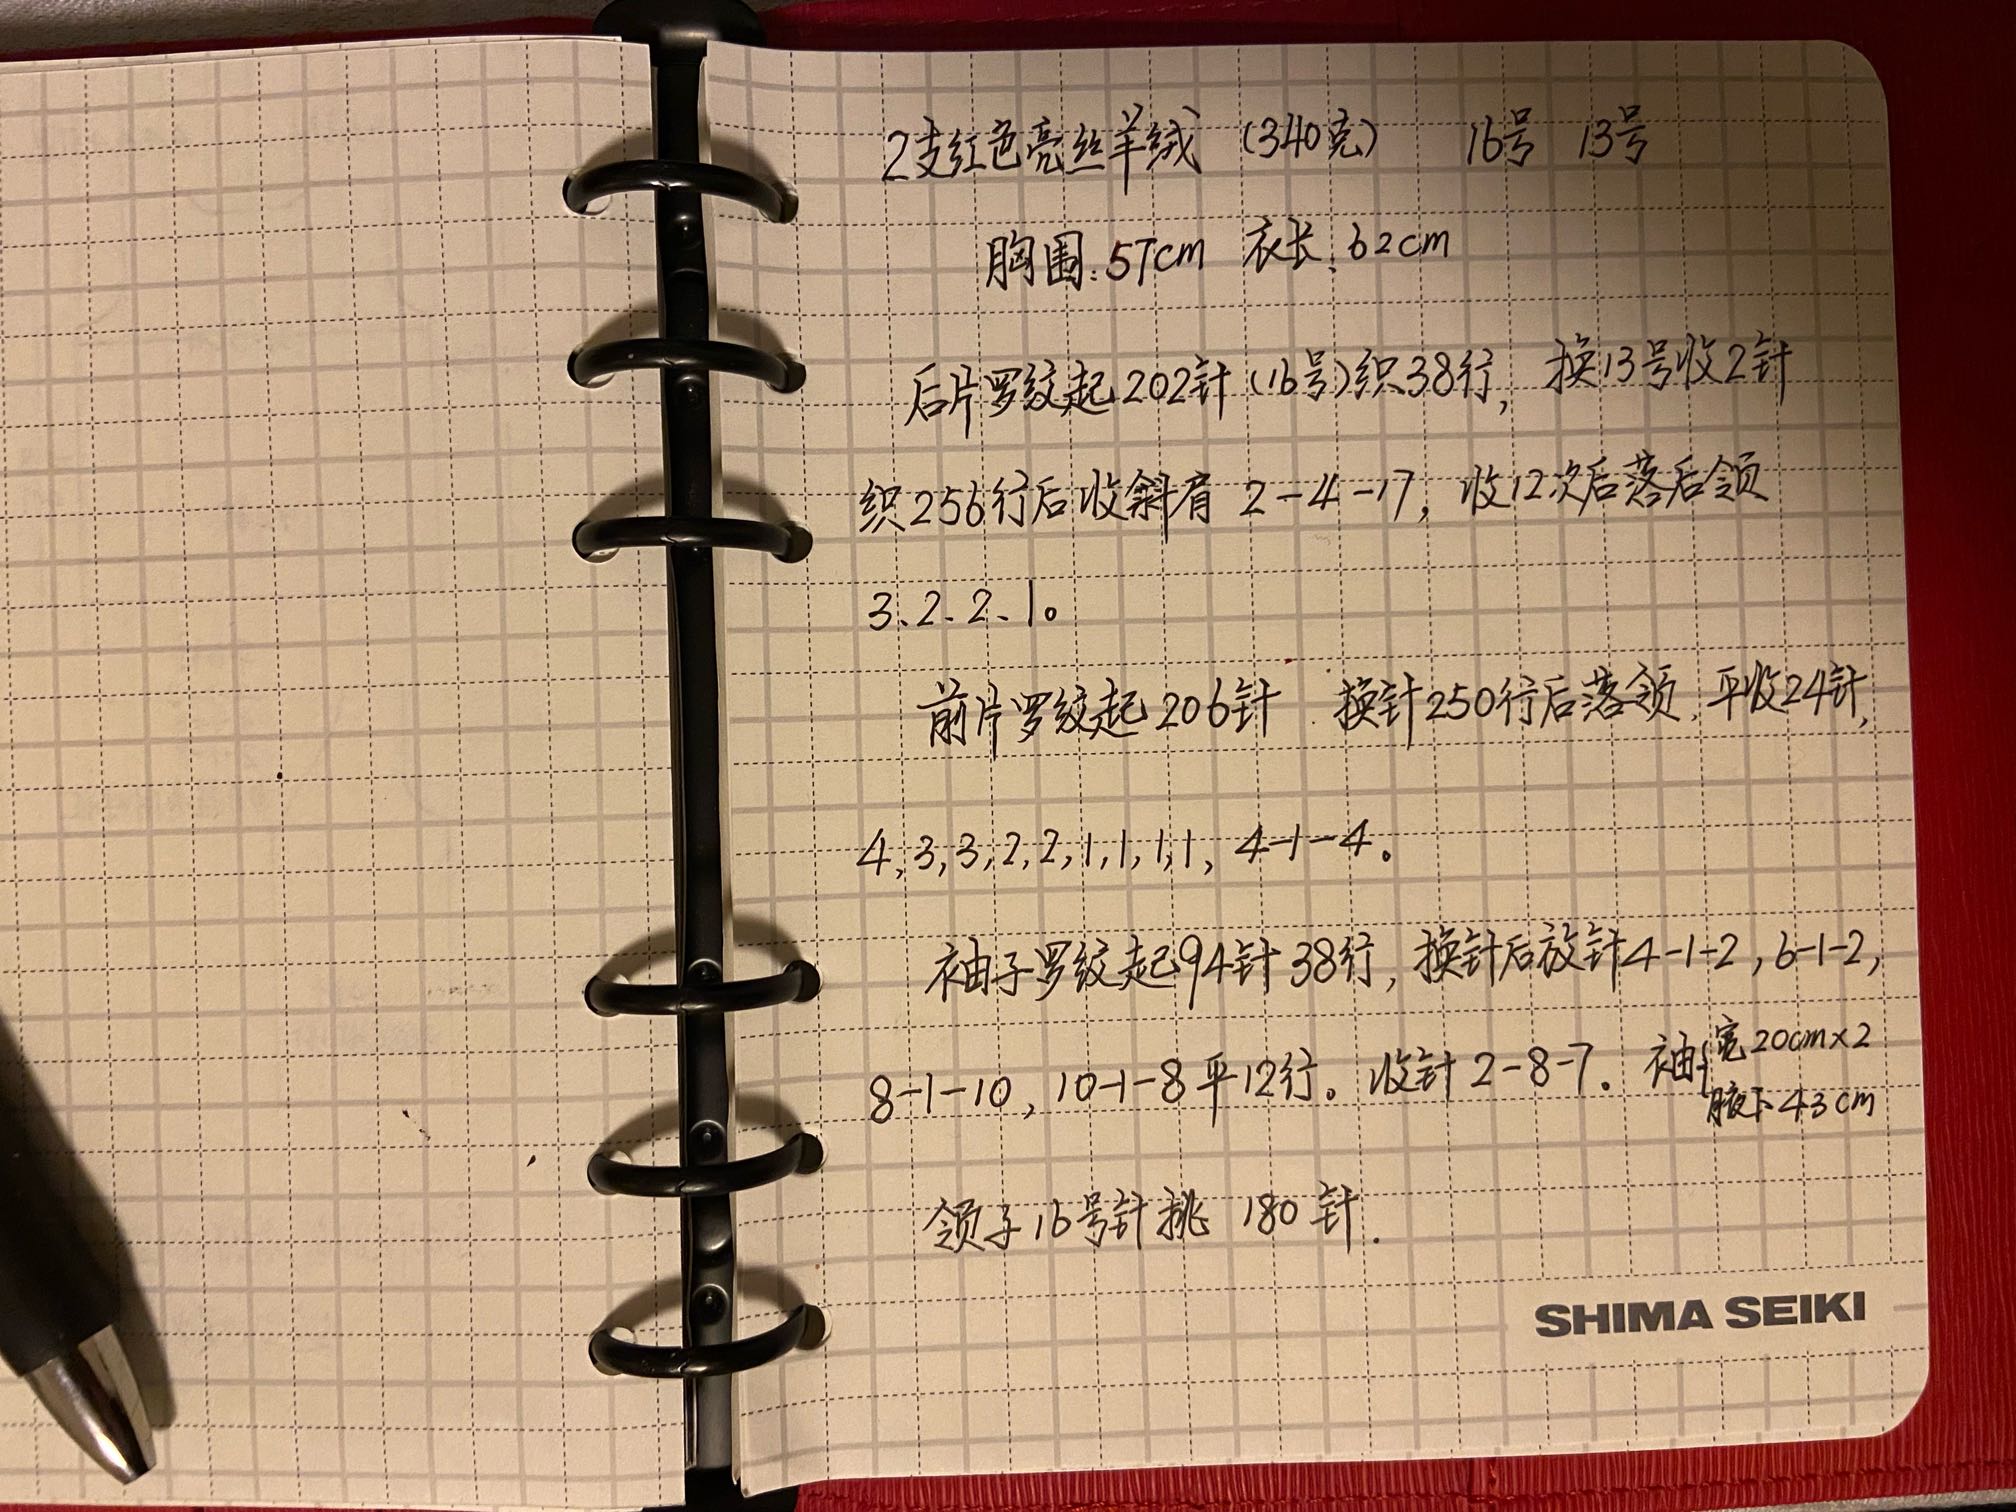 2支红色亮丝羊绒 (340克) 16号 13号
胸围:57cm 衣长:62cm
后片罗纹起202针(16号)织38行, 换13号收2针
织256行后收斜肩 2-4-17, 收12次后落后领
3、2、2、1。
前片罗纹起206针 换针250行后落领, 平收24针,
4,3,3,2,2,1,1,1,1, 4-1-4.
袖子罗纹起94针38行, 换针后放针4-1-2, 6-1-2,
8-1-10, 10-1-8平12行。收针2-8-7. 袖{宽20cm×2
腋下43cm
领子16号针挑 180针.
SHIMA SEIKI